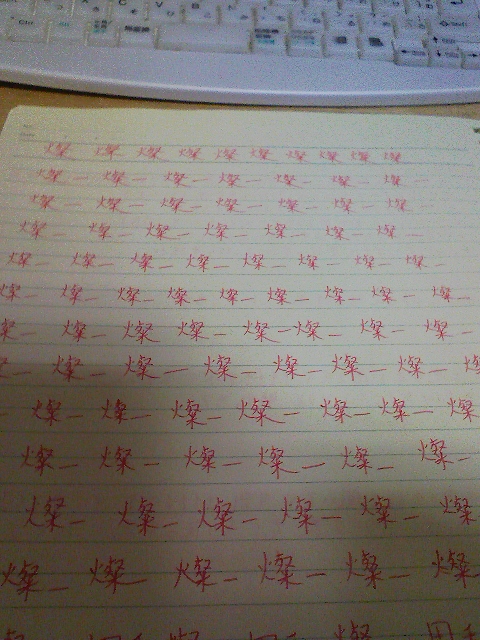 燦 燦 燦 燦 燦 燦 燦 燦 燦 燦
燦 — 燦 — 燦 — 燦 — 燦 — 燦 — 燦
燦 — 燦 — 燦 — 燦 — 燦 — 燦 — 燦 —
燦 — 燦 — 燦 — 燦 — 燦 — 燦 — 燦 —
燦 — 燦 — 燦 — 燦 — 燦 — 燦 — 燦 — 燦 —
燦 — 燦 — 燦 — 燦 — 燦 — 燦 — 燦 — 燦 — 燦 —
燦 — 燦 — 燦 — 燦 — 燦 — 燦 — 燦 — 燦 —
— 燦 — 燦 — 燦 — 燦 — 燦 — 燦 — 燦
— 燦 — 燦 — 燦 — 燦 — 燦 — 燦 — 燦
燦 — 燦 — 燦 — 燦 — 燦 — 燦
燦 — 燦 — 燦 — 燦 — 燦 — 燦
燦 — 燦 — 燦 — 燦 — 燦 — 燦